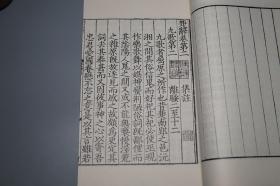 楚辭卷第二　集註
九歌第二　離騷二至十二
九歌者屈原之所作也昔楚南郢之邑沅
湘之間其俗信鬼而好祀其祀必使巫覡
作樂歌舞以娛神蠻荊陋俗詞既鄙俚而
其陰陽人鬼之間又或不能無褻慢淫荒
之雜原既放逐見而感之故頗爲更定其
詞去其泰甚而又因彼事神之心以寄吾
忠君愛國眷戀不忘之意是以其言雖若